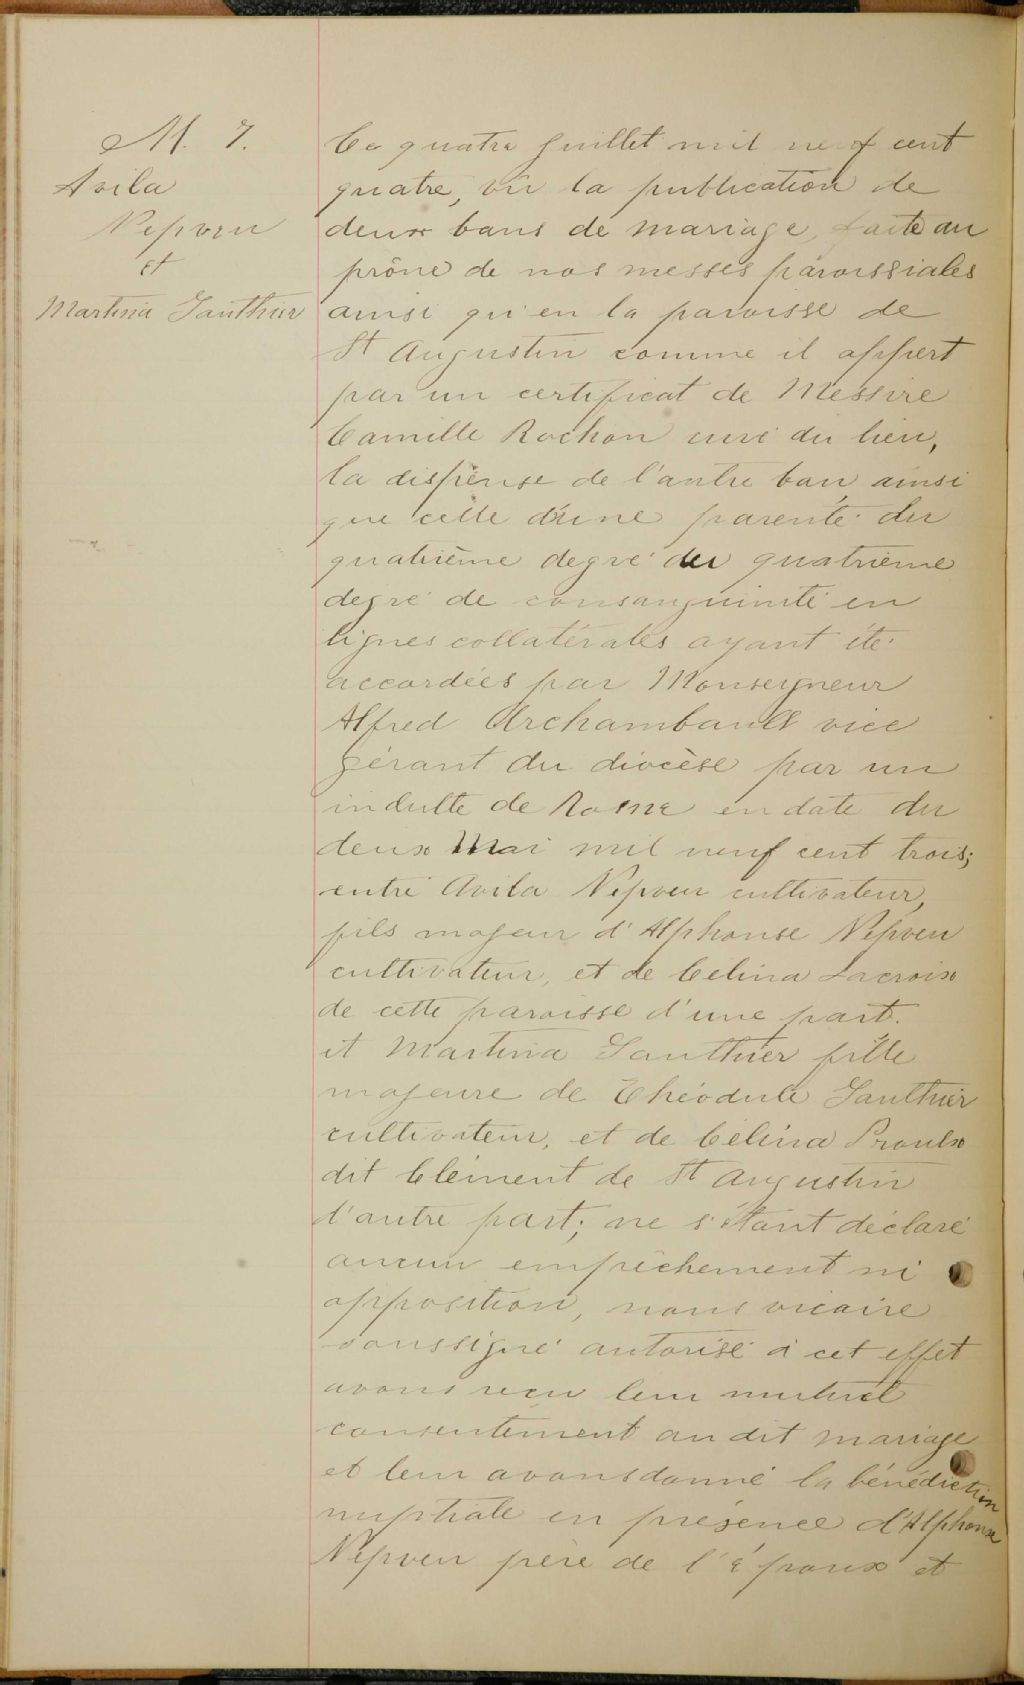 M. 7.
Avila
Nepveu
et
Martina Gauthier
Ce quatre Juillet mil neuf cent
quatre, vû la publication de
deux bans de mariage, faite au
prône de nos messes paroissiales
ainsi qu'en la paroisse de
St Augustin comme il appert
par un certificat de Messire
Camille Rochon curé du lieu,
la dispense de l'autre ban ainsi
que celle d'une parenté du
quatrième degré au quatrième
degré de consanguinité en
lignes collatérales ayant été
accordées par Monseigneur
Alfred Archambault vice
gérant du diocèse par un
indulte de Rome en date du
deux Mai mil neuf cent trois;
entre Avila Nepveu cultivateur,
fils majeur d'Alphonse Nepveu
cultivateur, et de Célina Lacroix
de cette paroisse d'une part.
et Martina Gauthier fille
majeure de Théodule Gauthier
cultivateur, et de Célina Proulx
dit Clément de St Augustin
d'autre part; ne s'étant déclaré
aucun empêchement ni
opposition, nous vicaire
soussigné autorisé à cet effet
avons reçu leur mutuel
consentement au dit mariage
et leur avons donné la bénédiction
nuptiale en présence d'Alphonse
Nepveu père de l'époux et